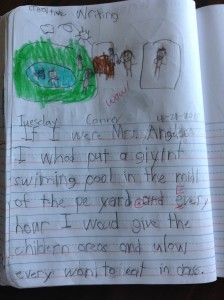 Creative Writing
wow!
Tuesday Career
If I were Mrs. Angelus
I whod put a giyint
swimming pool in the midil
of the pe yard and every
hour I woud give the
children oreos and ulow
every wan to eat in class.